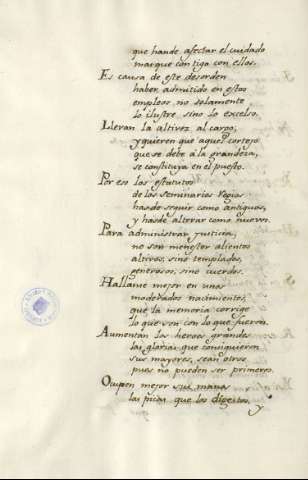 que hande afectar el cuidado
marque contiga con ellos.
Es causa de este desorden
haber admitido en estos
empleos, no solamente
lo ilustre sino lo excelso.
Lleran la altivez al cargo,
y quieren que aquel cortejo
que se debe à la grandeza,
se constituya en el puesto.
Por eso los estatutos
de los seminarios Regios
hasde seguir como antiguos,
y hasde alterar como nuevos.
Para administrar justicia,
no son menester alientos
altivos, sino templados,
generosos, sino cuerdos.
Hallame mejor en unos
moderados nacimientos,
que la memoria corrige
lo que son con lo que fueron.
Aumentan los heroes grandes
las glorias que consiguieron
sus mayores, sean otros
pues no pueden ser primeros.
Ocupen mejor sus manos
las picas que los digestos,
y